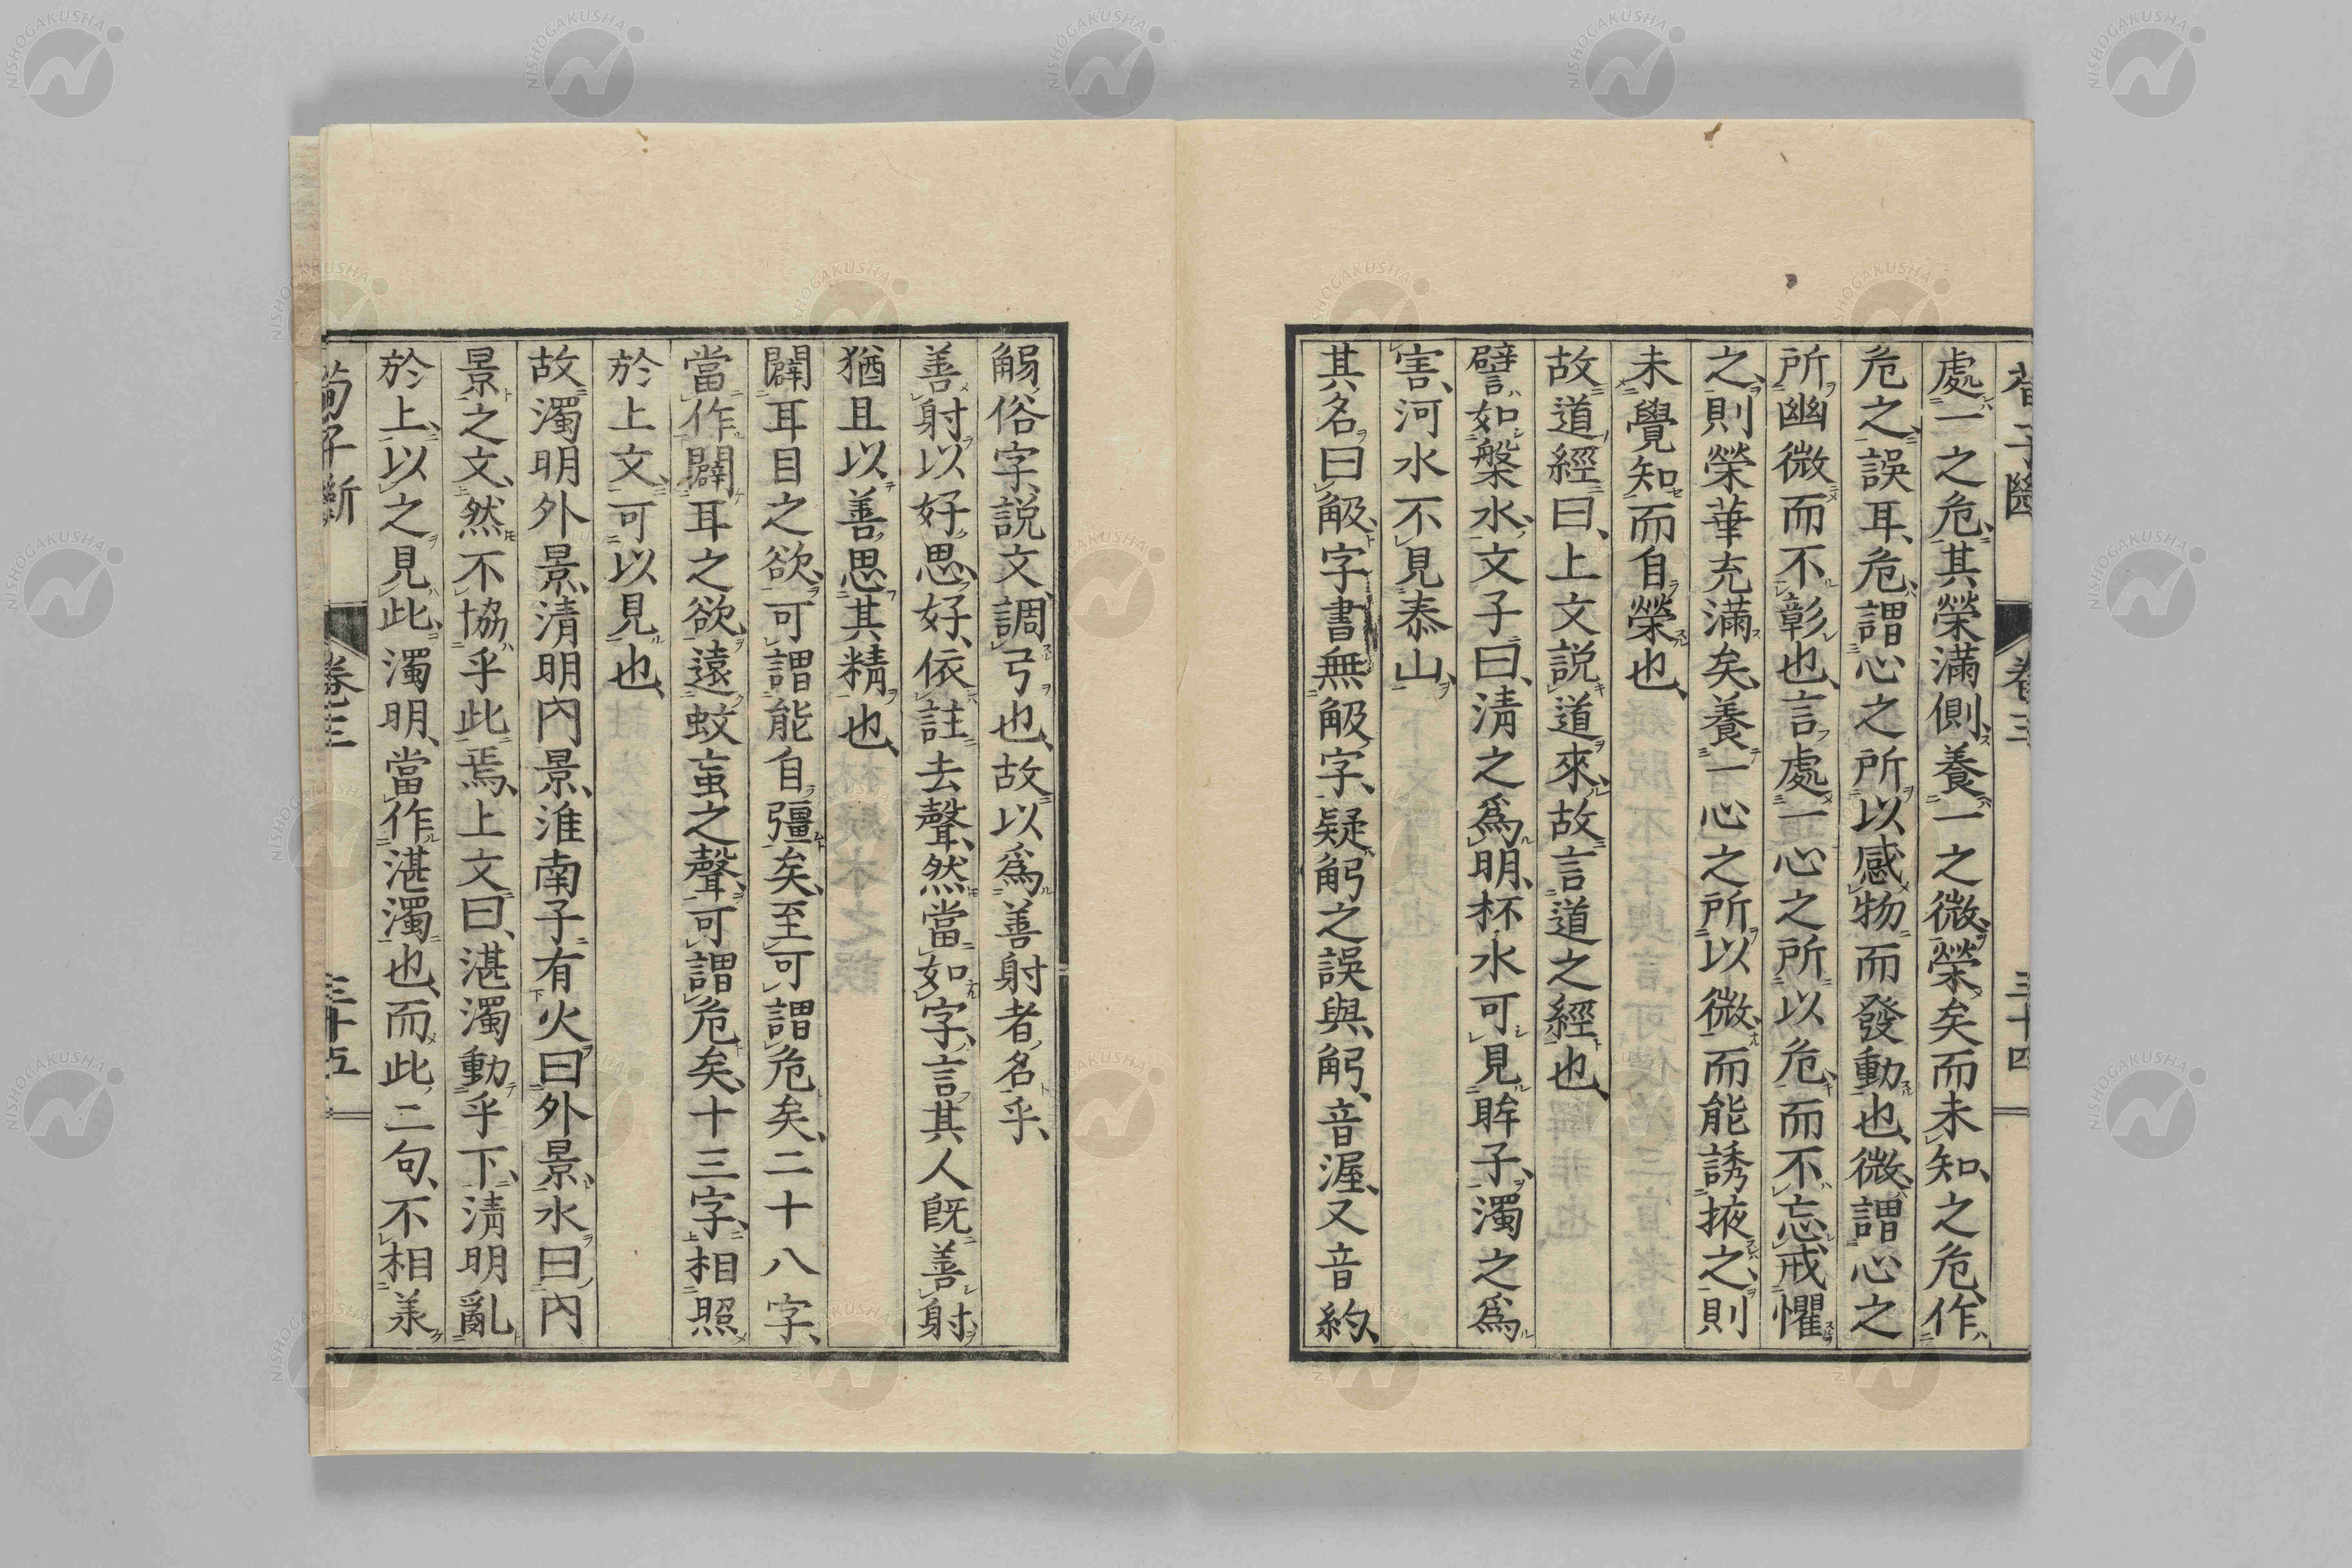 處一之危、其榮滿側、養一之微、榮矣而未知、之危、作
危之誤耳、危、謂心之所以感物而發動也、微、謂心之
所幽微而不彰也、言處一心之所以危、而不忘戒懼
之、則榮華充滿矣、養一心之所以微、而能誘掖之、則
未覺知而自榮也、
故道經曰、上文説道來、故言道之經也、
譬如槃水、文子曰、清之爲明、杯水可見眸子、濁之爲
害、河水不見泰山、
其名曰觙、字書無觙字、疑䚧之誤與、䚧、音渥、又音約、
觸、俗字、説文、調弓也、故以爲善射者、名乎、
善射以好思、好、依註去聲、然當如字、言其人既善射、
猶且以善思其精也、
闢耳目之欲、可謂能自彊矣、至可謂危矣、二十八字、
當作闢耳之欲、遠蚊䖟之聲、可謂危矣、十三字、相照
於上文、可以見也、
故濁明外景、清明内景、淮南子有火曰外景、水曰内
景之文、然不協乎此焉、上文曰、湛濁動乎下、清明亂
於上、以之見此、濁明、當作湛濁也、而此二句、不相羕
荀子斷
卷三
三十五
卷三
三十四
NISHOGAKUSHA